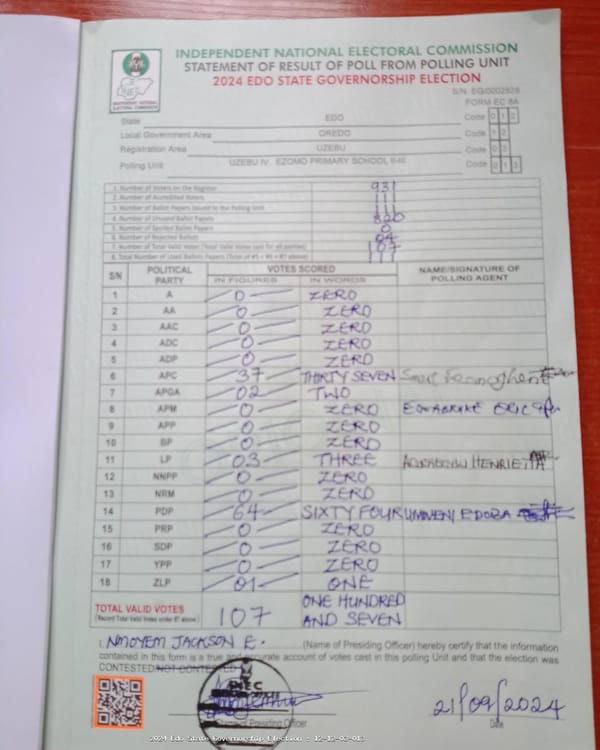 INDEPENDENT NATIONAL ELECTORAL COMMISSION
STATEMENT OF RESULT OF POLL FROM POLLING UNIT
2024 EDO STATE GOVERNORSHIP ELECTION
S/N EG/0002828
FORM EC 8A
INEC
INDEPENDENT NATIONAL ELECTORAL COMMISSION
State EDO Code 0 1 2
Local Government Area OREDO Code 1 2
Registration Area UZEBU Code 0 3
Polling Unit UZEBU IV EZOMO PRIMARY SCHOOL II-III Code 0 1 3
1. Number of Voters on the Register 931
2. Number of Accredited Voters 111
3. Number of Ballot Papers Issued to the Polling Unit
4. Number of Unused Ballot Papers 820
5. Number of Spoiled Ballot Papers 0
6. Number of Rejected Ballots 04
7. Number of Total Valid Votes (Total Valid Votes cast for all parties) 107
8. Total Number of Used Ballots Papers (Total of #5 + #6 + #7 above)
S/N POLITICAL PARTY VOTES SCORED NAME/SIGNATURE OF POLLING AGENT
IN FIGURES IN WORDS
1 A 0 ZERO
2 AA 0 ZERO
3 AAC 0 ZERO
4 ADC 0 ZERO
5 ADP 0 ZERO
6 APC 37 THIRTY SEVEN
7 APGA 02 TWO
8 APM 0 ZERO ERIC
9 APP 0 ZERO
10 BP 0 ZERO
11 LP 03 THREE HENRIETTA
12 NNPP 0 ZERO
13 NRM 0 ZERO
14 PDP 64 SIXTY FOUR
15 PRP 0 ZERO
16 SDP 0 ZERO
17 YPP 0 ZERO
18 ZLP 01 ONE
TOTAL VALID VOTES 107 ONE HUNDRED AND SEVEN
(Record Total Valid Votes under #7 above)
I, NMOYEM JACKSON E. (Name of Presiding Officer) hereby certify that the information
contained in this form is a true and accurate account of votes cast in this polling Unit and that the election was
CONTESTED/NOT CONTESTED
INEC
21/09/2024
of Presiding Officer Date
2024 Edo State Governorship Election : 12-12-03-013